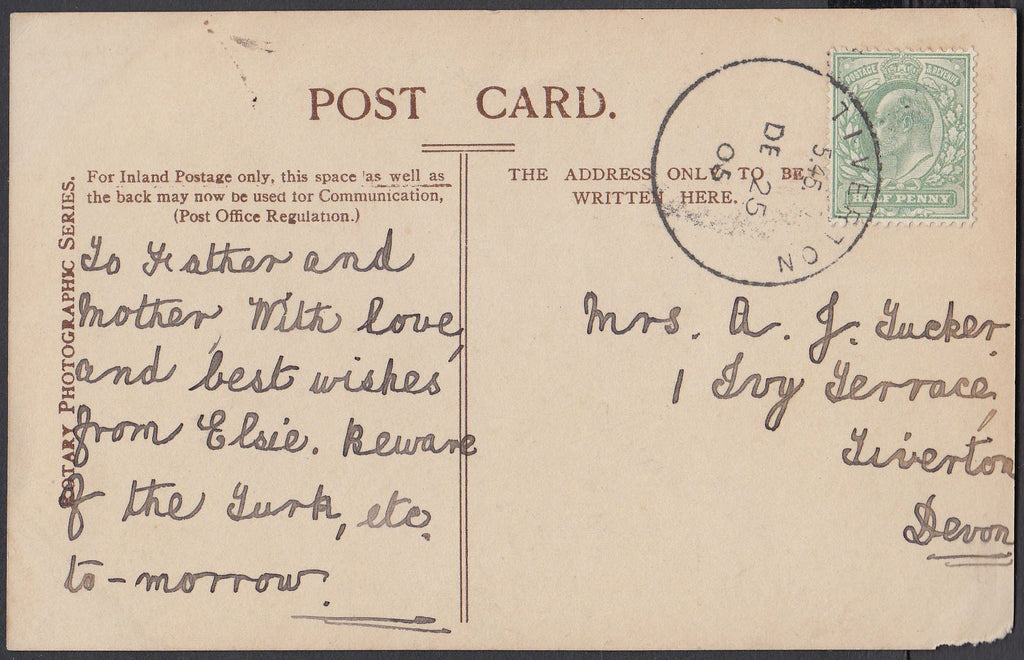 POST CARD.
For Inland Postage only, this space as well as
the back may now be used for Communication,
(Post Office Regulation.)
THE ADDRESS ONLY TO BE
WRITTEN HERE.
ROTARY PHOTOGRAPHIC SERIES.
POSTAGE & REVENUE
HALF PENNY
TIVERTON
5.45
DE 25
05
To Father and
Mother, With love,
and best wishes
from Elsie. Beware
of the Turk, etc.
to-morrow.
Mrs. A. J. Tucker.
1 Ivy Terrace,
Tiverton
Devon